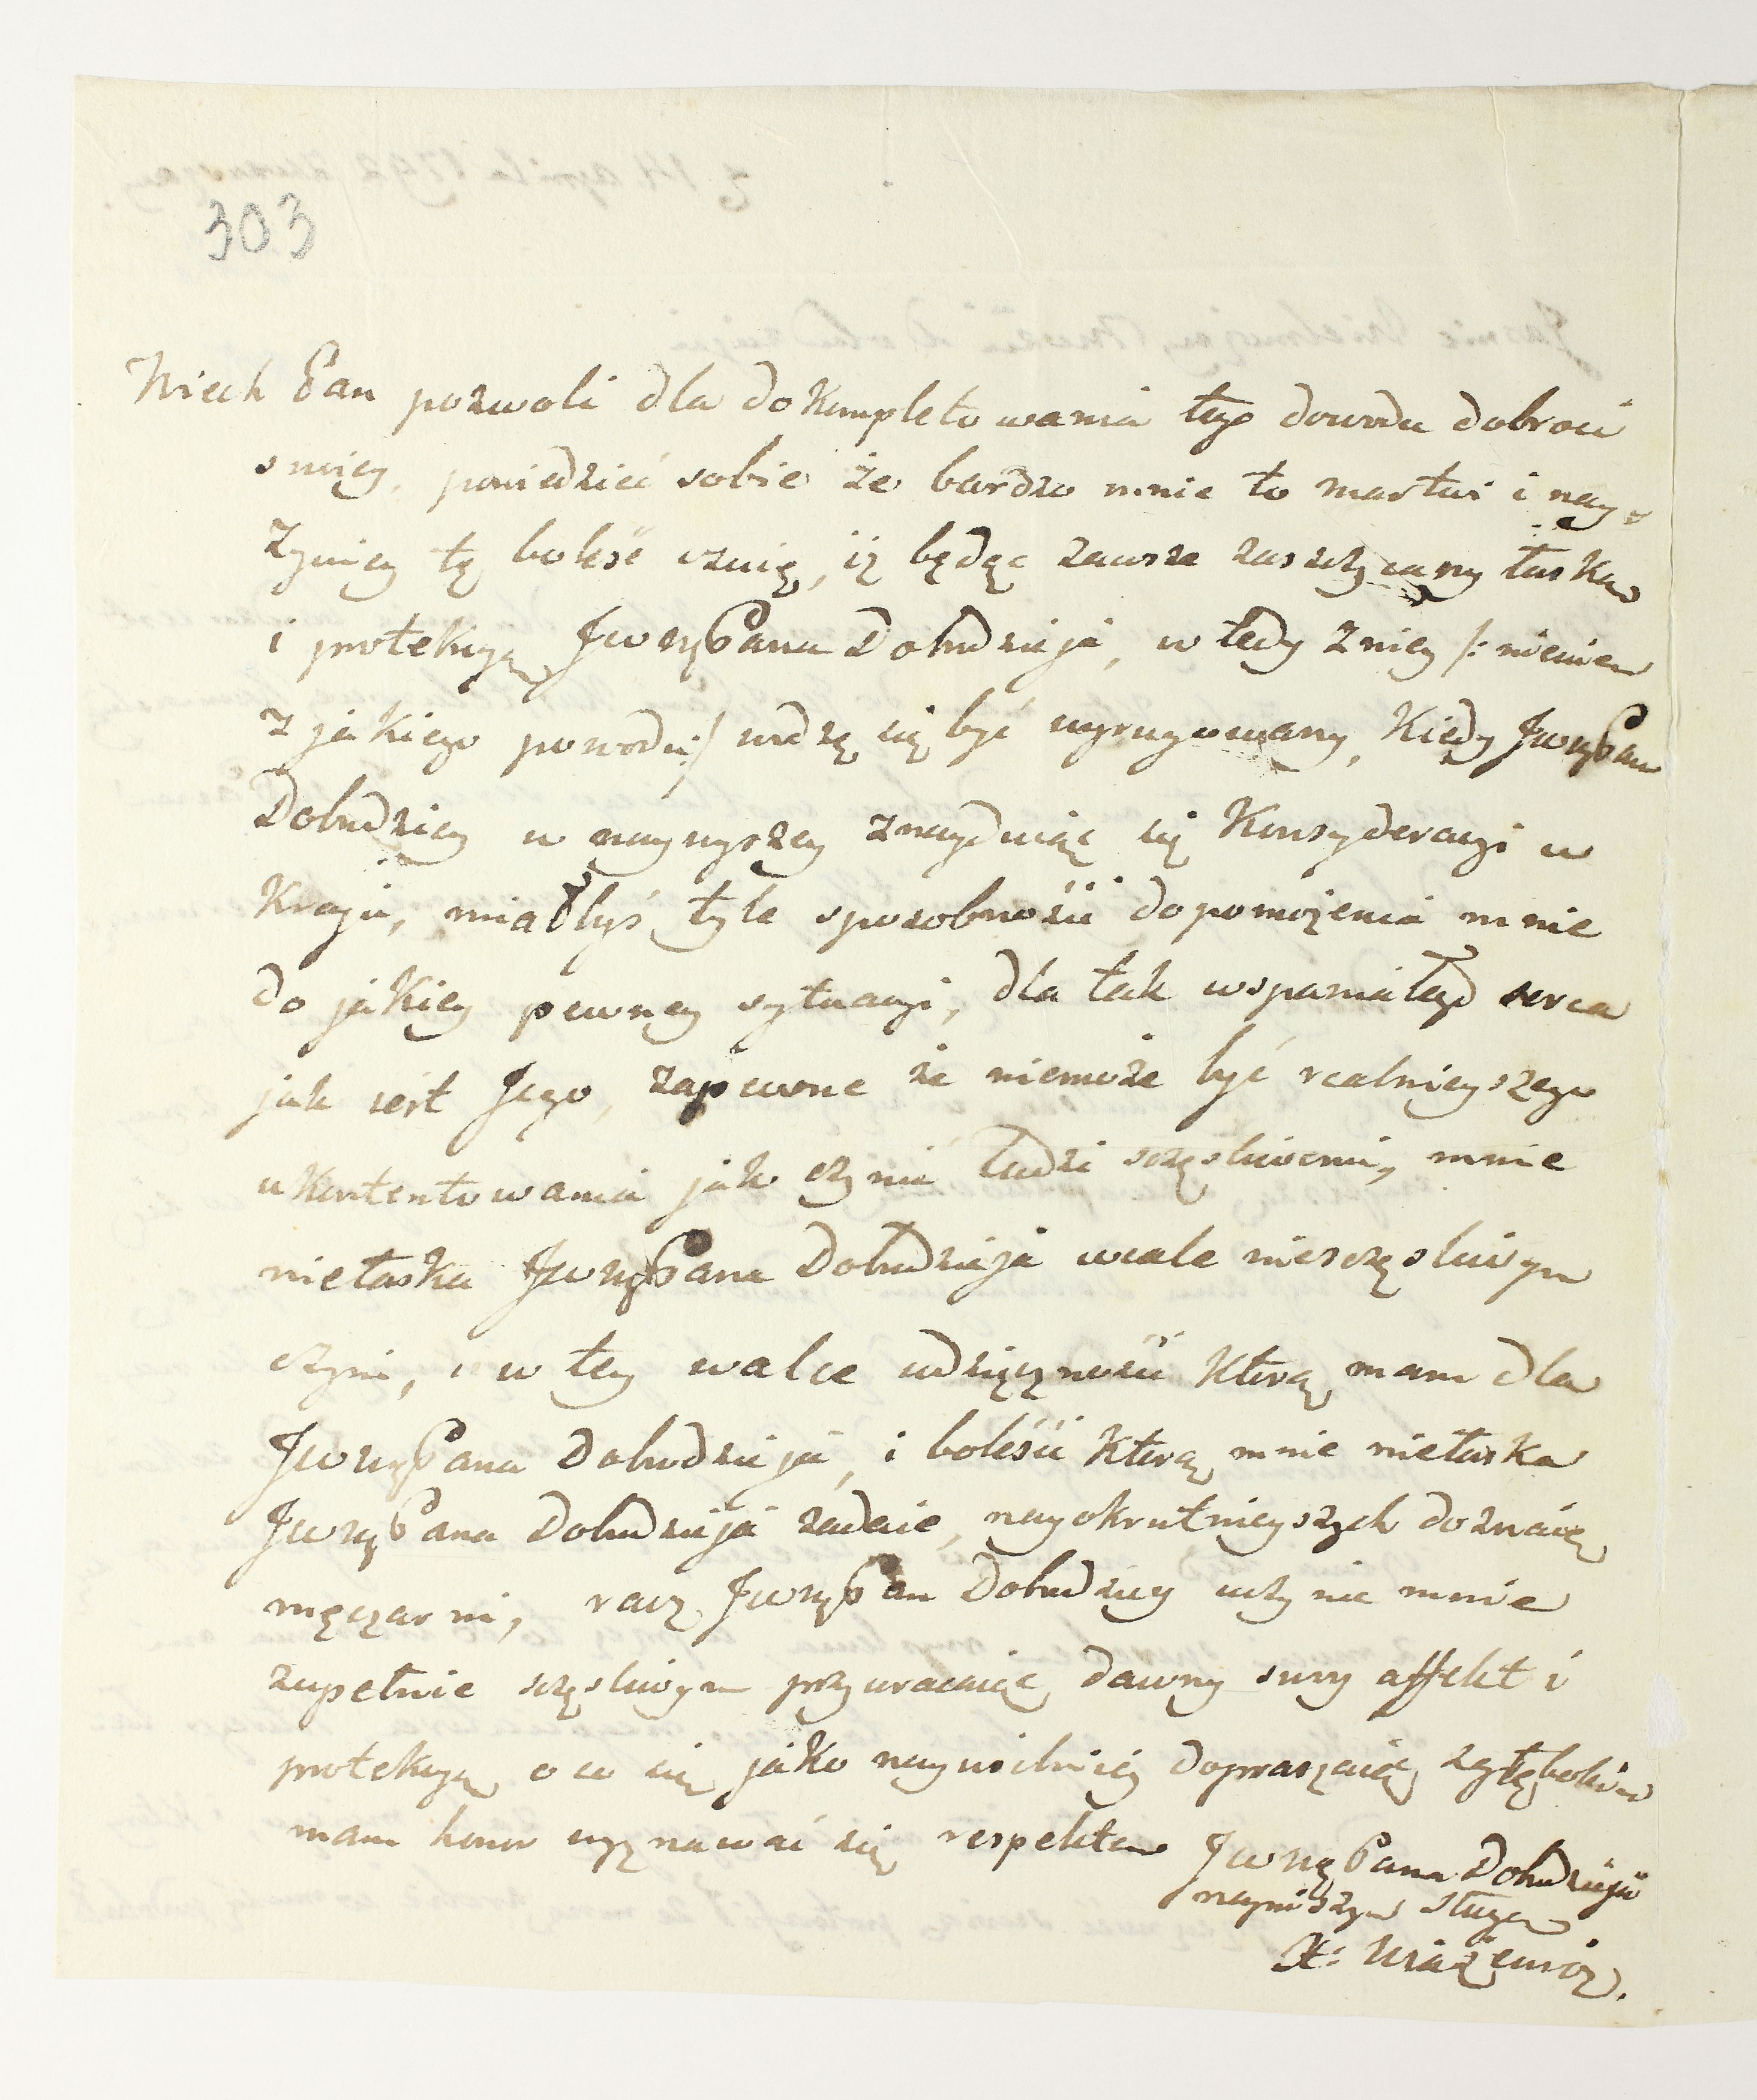 303
Niech Pan pozwoli dla dokompletowania tego dowodu dobroci
swiey, powiedzieć sobie że bardzo mnie to martwi i nay
żywiey tę boleść czuię, iż będąc zawsze zaszczycany łaską
i protekcyą JWWPana Dobrodzieja, w tedy z niey /: niewiem
z jakiego powodu :/ widzę się być wyrugowany, kiedy JWWPan
Dobrodziey w naywyższey znayduiąc się Konsyderacyi w
Kraju, miałbyś tyle sposobności dopomożenia mnie
do jakiey pewney sytuacyi, dla tak wspaniałego serca
jak jest Jego, zapewne że niemoże być realnieyszego
ukontentowania jak czynić ludzi szczęśliwemi, mnie
niełaska JWWPana Dobrodzieja wcale nieszczęśliwym
czyni, i w tey walce wdzięczności którą mam dla
JWWPana Dobrodzieja, i boleści którą mnie niełaska
JWWPana Dobrodzieja zadaie, nayokrutnieyszych doznaię
męczarni, racz JWWPan Dobrodziey uczynić mnie
zupełnie szczęśliwym przywracaiąc dawny swóy affekt i
protekcyą o co się jako nayusilniey dopraszaiąc zgłębokim
mam honor wyznawać się respektem JWWPana Dobrodzieja
nayniższym sługą
X: Wiażewicz.